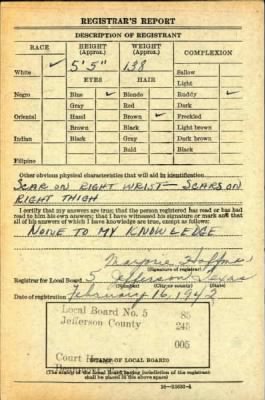 REGISTRAR'S REPORT
DESCRIPTION OF REGISTRANT
RACE HEIGHT (Approx.) WEIGHT (Approx.) COMPLEXION
White ✓ 5'5" 138 Sallow
EYES HAIR Light
Negro Blue ✓ Blonde Ruddy ✓
Gray Red Dark
Oriental Hazel Brown ✓ Freckled
Brown Black Light brown
Indian Black Gray Dark brown
Bald Black
Filipino
Other obvious physical characteristics that will aid in identification
SCAR ON RIGHT WRIST — SCARS ON
RIGHT THIGH
I certify that my answers are true; that the person registered has read or has had
read to him his own answers; that I have witnessed his signature or mark and that
all of his answers of which I have knowledge are true, except as follows:
NONE TO MY KNOWLEDGE
Marjorie Hoffman
(Signature of registrar)
Registrar for Local Board 5 Jefferson Texas
(Number) (City or county) (State)
Date of registration February 16, 1942
Local Board No. 5 85
Jefferson County 245
005
Court
(STAMP OF LOCAL BOARD)
(The stamp of the Local Board having jurisdiction of the registrant
shall be placed in the above space)